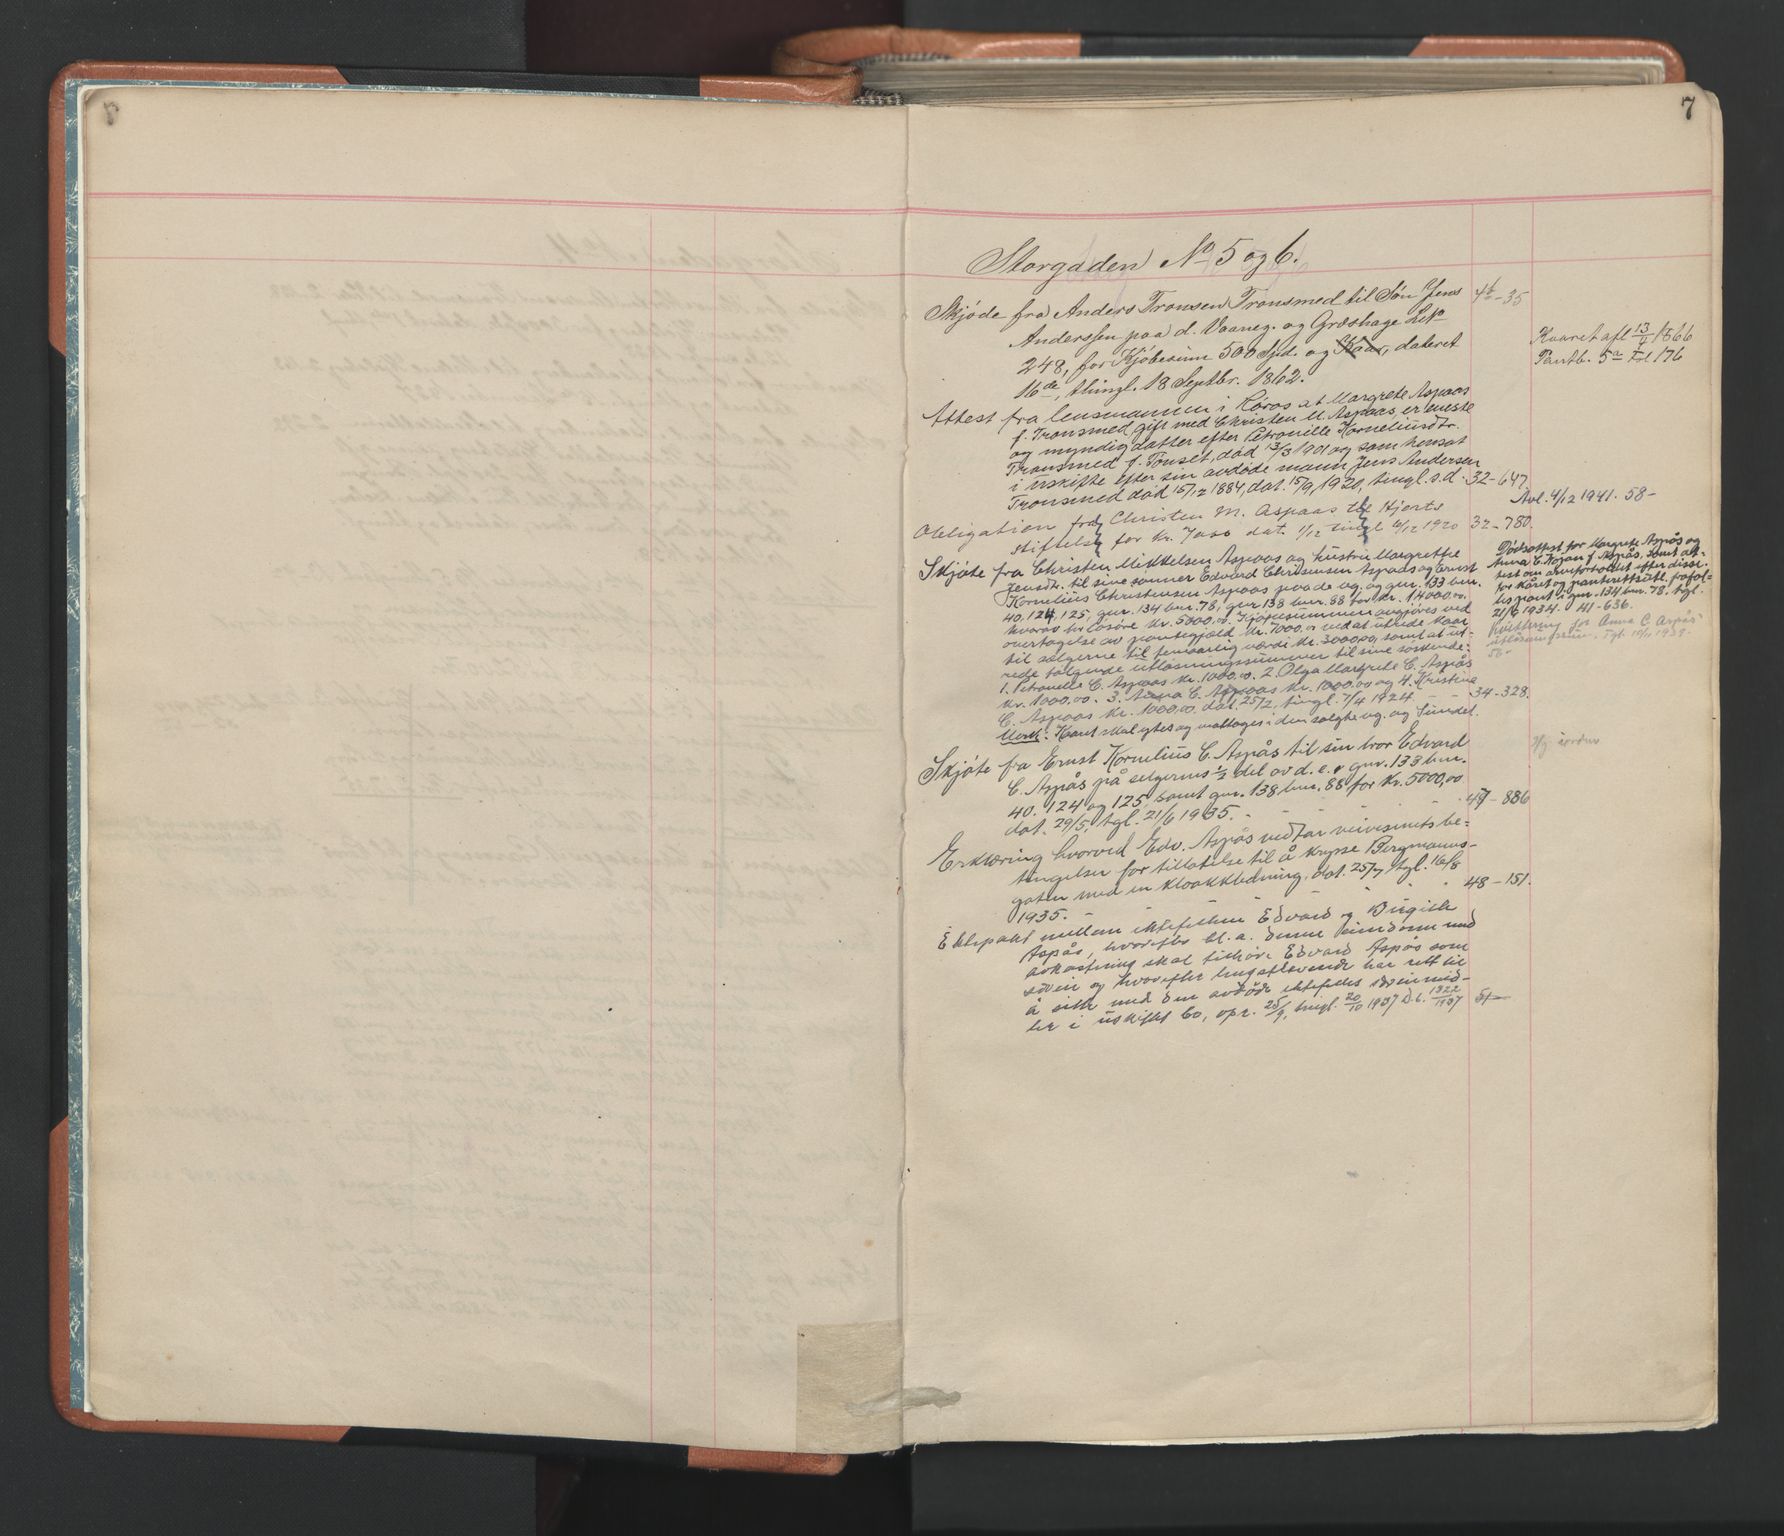 7
Storgaden No 5 og 6.
Skjöde fra Anders Tronsen Tronsmed til Sön Jens 4b-35
Anderssen paa d. Vaaneg. og Græshage Litr
248, for Kjöbesum 500 Spd. og Kaar, dateret
16de, thingl. 18 Septbr. 1862.
Kaaret afl 13/4 1866
Pantb. 5a fol 176
Attest fra lensmannen i Röros at Margrete Aspaas
f. Tronsmed gift med Christen M. Aspaas, er eneste
og myndig datter efter Petronille Korneliusdtr.
Tronsmed f. Tonset, död 13/3 1901 og som hensat
i uskifte efter sin avdöde mann Jens Andersen
Tronsmed död 15/12 1884, dat. 15/9, 1920, tingl. s.d. 32-647
Obligation fra Christen M. Aspaas til Hjerts
stiftelse for kr. 7000 dat. 1/12 tingl 6/12 1920 32-780.
Avl. 4/12 1941. 58-
Skjöte fra Christen Mikkelsen Aspaas og hustru Margrethe
Jensdtr. til sine sønner Edvard Christensen Aspaas og Ernst
Kornelius Christensen Aspaas paa de og. og gnr. 133 bnr.
40, 124, 125, gnr. 134 bnr. 78, gnr 138 bnr. 88 for kr. 14000.00
hvorav for lösöre kr. 5000.00. Kjöpesummen avgjöres ved
overtagelse av pantegjæld kr. 7000.00 ved at utrede kaar
til sælgerne til femaarlig værdi kr. 3000,00, samt at ut-
rede fölgende utlösningssummer til sine söskende:
1. Petronelle C. Aspaas kr. 1000.00. 2. Olga Margrete C. Aspås
kr. 1000,00. 3. Anna C. Aspaas kr. 1000.00 og 4. Kristina
C. Aspaas kr. 1000.00, dat. 25/2, tingl. 7/4 1924 - - 34-328.
Merk: Kaaret skal ytes og mottages i den solgte og. og Sundet.
Dödsattest for Margrete Aspås og
Anna C. Kojan f. Aspås, samt at-
test om arveforholdet efter disse
for kåret og panterettsutl. frafal-
les pant i gnr. 134 bnr. 78, tgl.
21/6 1934. 41-636.
Kvittering for Anna C. Aspås
utlösningssum. Tgl. 10/11 1939.
56-
Skjöte fra Ernst Kornelius C. Aspås til sin bror Edvard
C. Aspås på selgerens 1/2 del av d. e. og gnr. 133 bnr.
40. 124 og 125, samt gnr. 138 bnr. 88 for kr. 5000,00
dat. 29/5, tgl. 21/6 1935. - - - 47-886
Erklæring hvorved Edv. Aspås vedtar veivesenets be-
tingelser for tillatelse til å krysse Bergmanns-
gaten med en kloakkledning, dat. 25/7, tgl. 16/8
1935. - - - - 48-151.
Ektepakt mellem ektefellene Edvard og Birgitte
Aspås, hvorefter bl. a. denne eiendom med
avkastning skal tilhöre Edvard Aspås som
særeie og hvorefter lengstlevende har rett til
å sitte med den avdöde ektefelles særeiemid-
ler i uskiftet bo, opr. 25/9, tingl. 20/10 1937 D.b. 1322/1937 51-